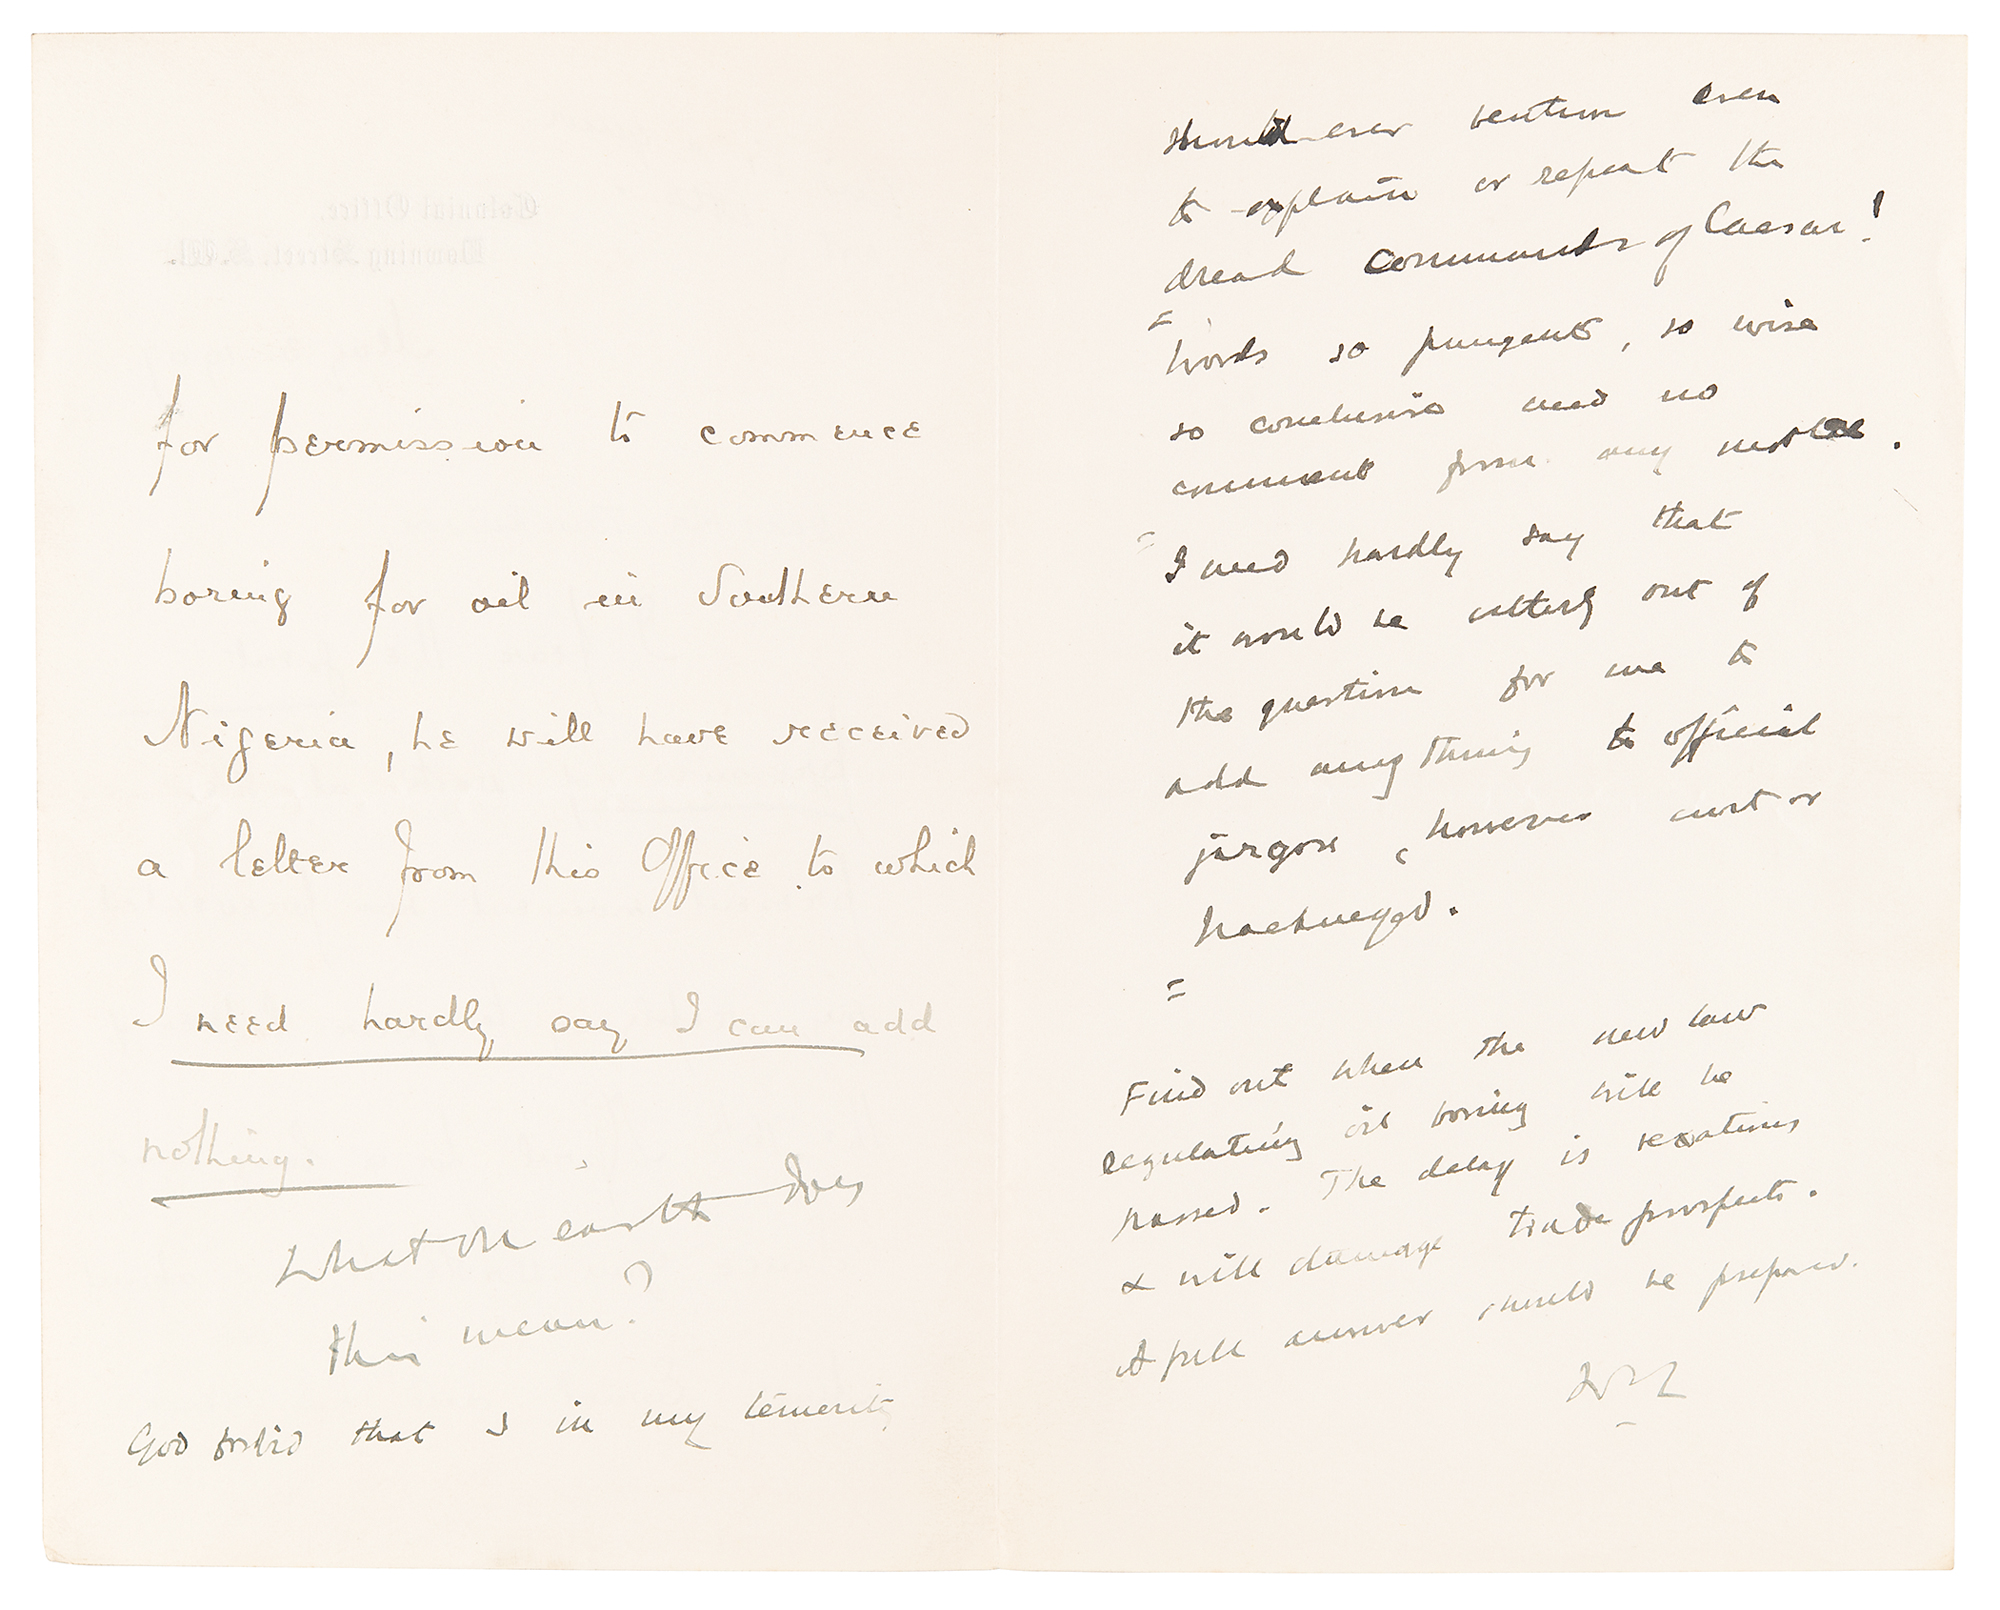 Colonial Office,
Downing Street, S.W.
for permission to commence
boring for oil in Southern
Nigeria, he will have received
a letter from this Office to which
I need hardly say I can add
nothing.
What on earth does
this mean?
God forbid that I in my temerity
should ever venture even
to explain or repeat the
dread commands of Caesar!
=
Words so pungent, so wise
so conclusive need no
comment from any
=
I need hardly say that
it would be utterly out of
the question for me to
add anything to official
jargon, however curt or
hackneyed.
=
Find out when the new law
regulating oil boring will be
passed. The delay is vexatious
& will damage trade prospects.
A full answer should be prepared.